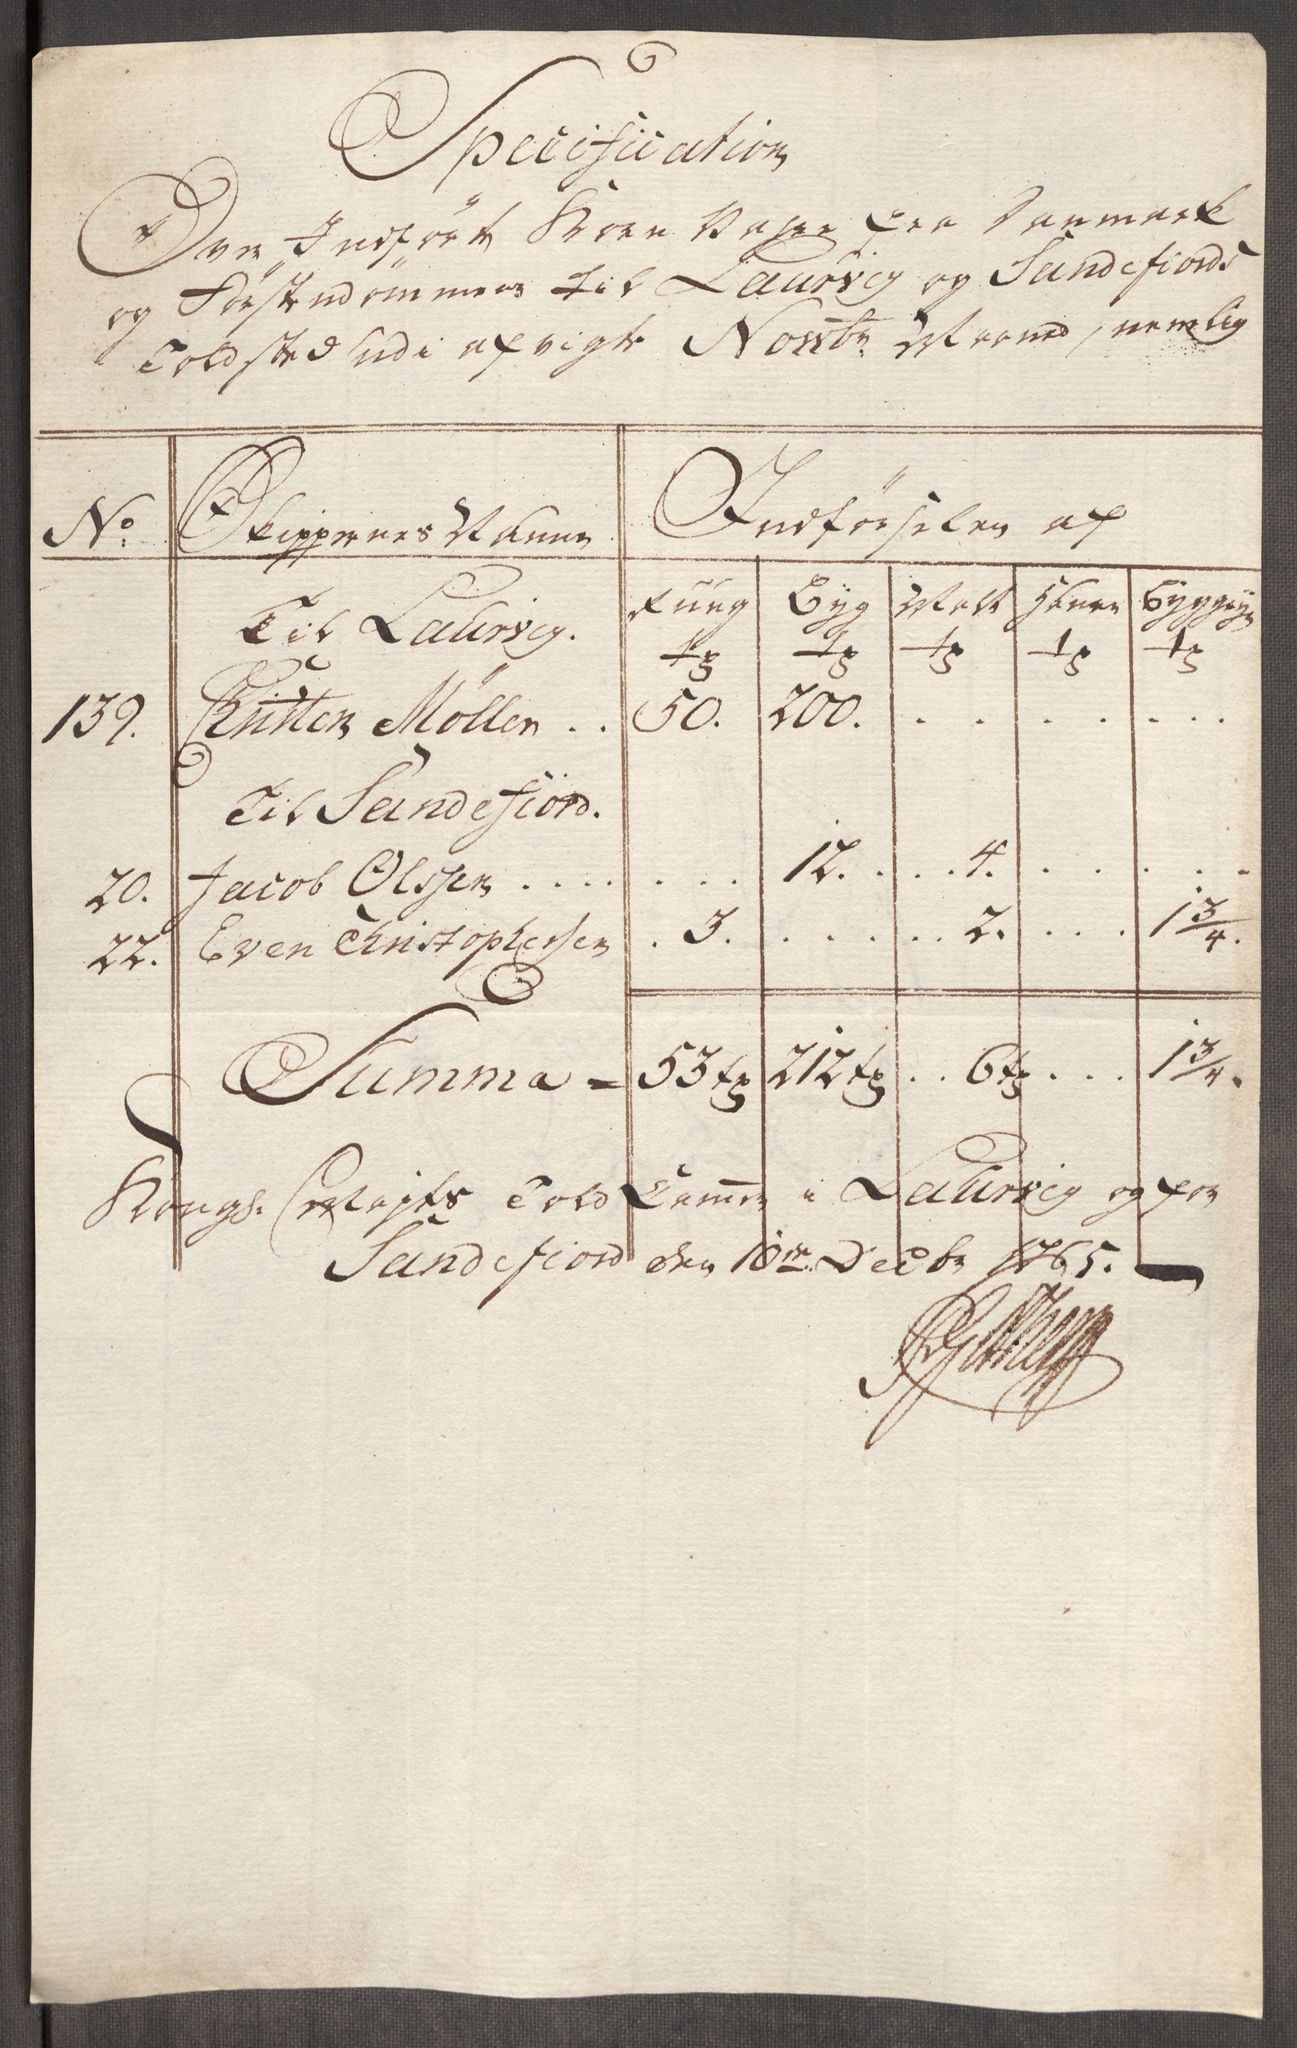 Specification
Over Indført Korn Vahre fra Danmark
og Førstendømmene til Laurvig og Sandefiords
Toldsted udi afvigte Novbr Maaned, nemlig
No. Skippernes Nafne Indførselen af
Til Laurvig. Rug Byg Malt Hafre Byggryn
tr tr tr tr tr
139. Christen Möller .. 50. 200. . . . . . . .
Til Sandefiord.
20. Jacob Olssen . . . . . . . 12. . . . 4. . . . . . .
22. Even Christophersen . 3. . . . . . . 2. . . . 1 3/4.
Summa = 53 tr 212 tr . . 6 tr . . . 1 3/4.
Kongl. Mayts Told Cammer i Laurvig og for
Sandefiord den 10de Decbr 1765.